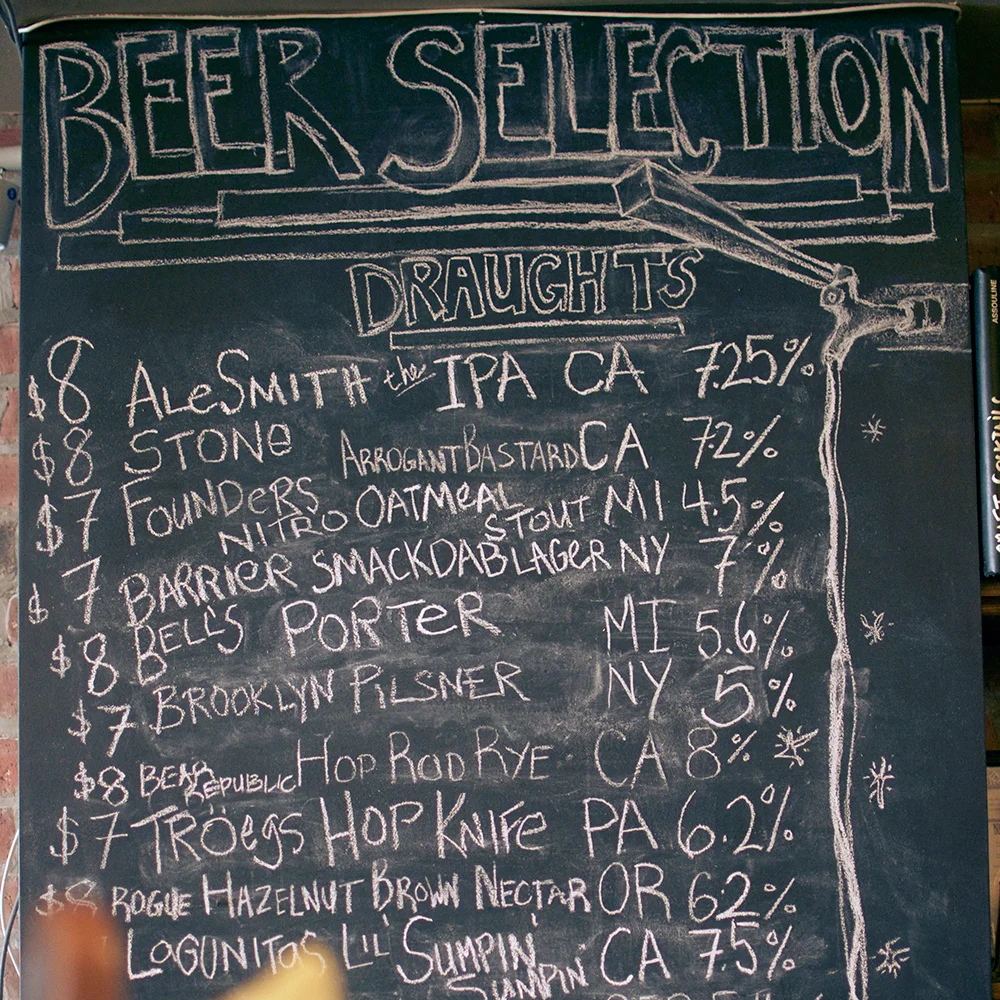 BEER SELECTION
DRAUGHTS
$8 ALeSMITH the IPA CA 7.25%
$8 STONe ARROGANT BASTARD CA 7.2%
$7 FOUNDeRS NITRO OATMeAL STOUT MI 4.5%
$7 BARRIeR SMACKDAB LAGeR NY 7%
$8 BELL'S PORTeR MI 5.6%
$7 BROOKLYN PiLSNER NY 5%
$8 BEAR REPUBLIC HOP ROD RYE CA 8%
$7 TRÖegS HOP KNIFe PA 6.2%
$8 ROGUE HAZELNUT BROWN NECTAR OR 6.2%
LAGUNITAS LIL' SUMPIN' SUMPIN' CA 7.5%
ASSOULINE